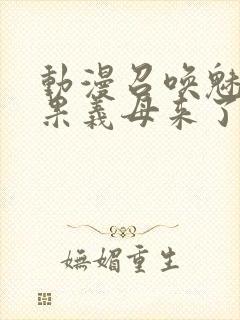 動漫召喚魅
果義母来了
嫵媚重生